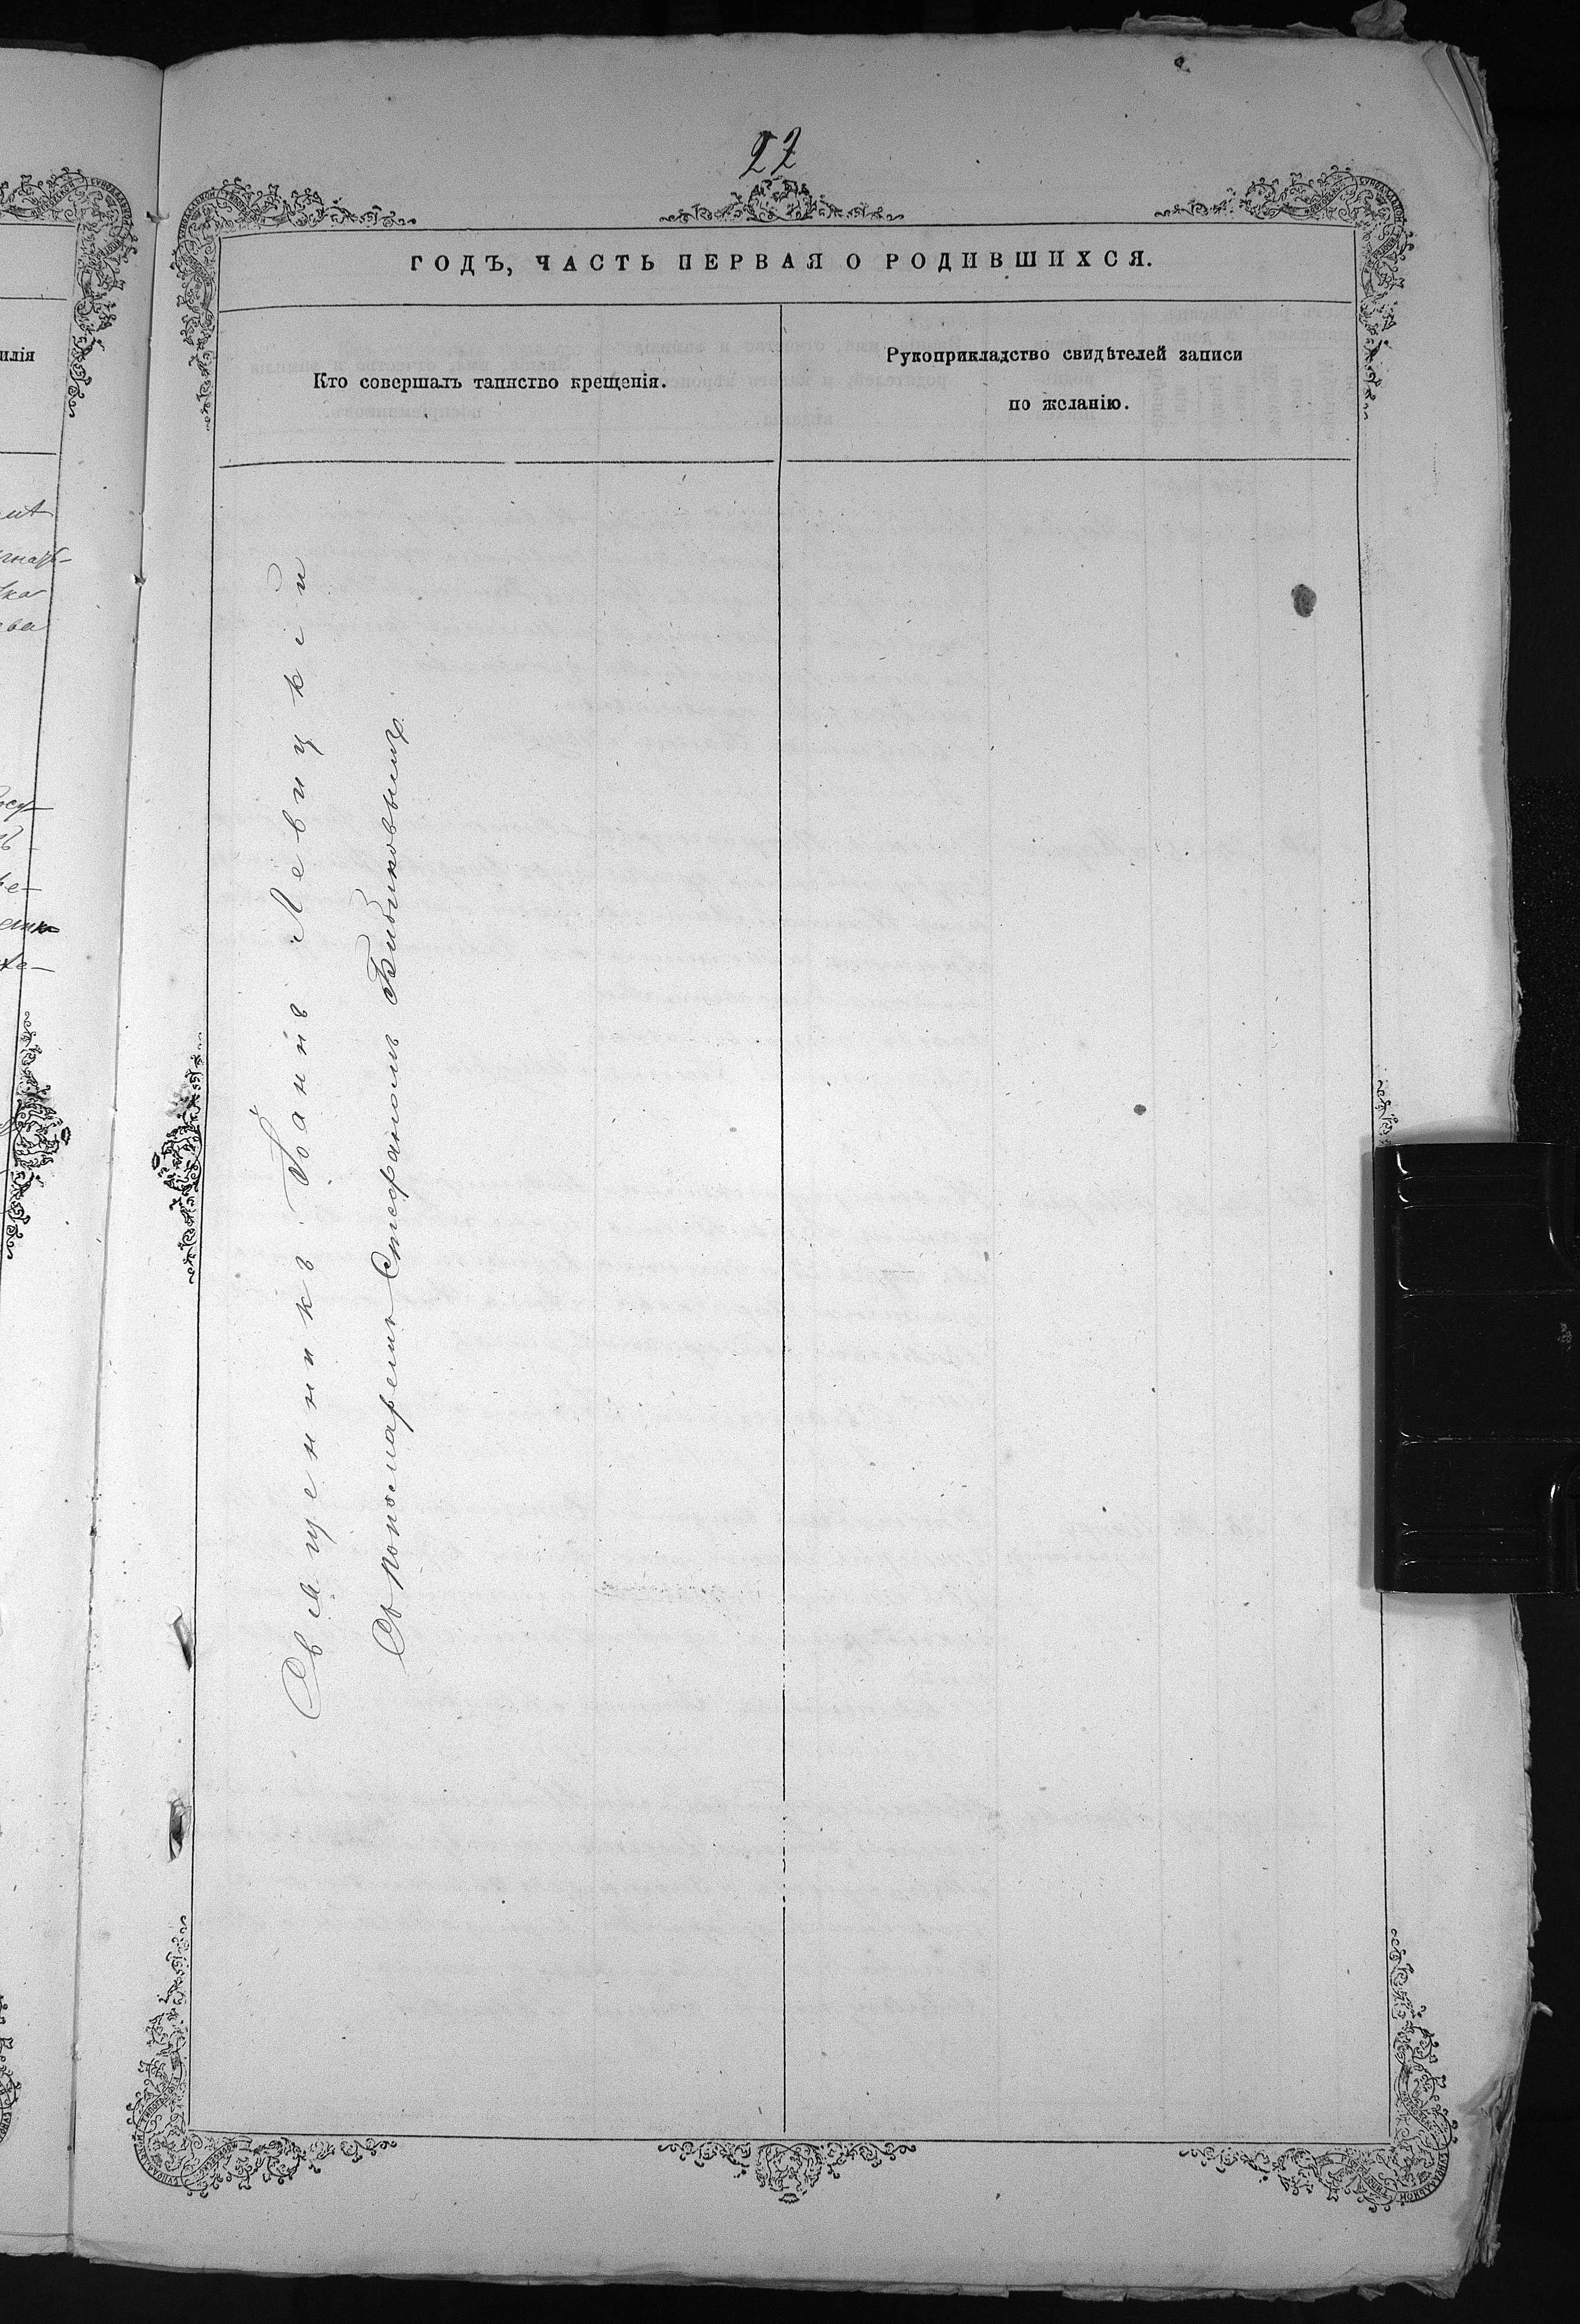 27
ГОДЪ, ЧАСТЬ ПЕРВАЯ О РОДИВШИХСЯ.
Кто совершалъ таинство крещенія.
Рукоприкладство свидѣтелей записи
по желанію.
Священникъ Іоаннъ Левицкій
Съ пономаремъ Стефаномъ Бибиковымъ
илія